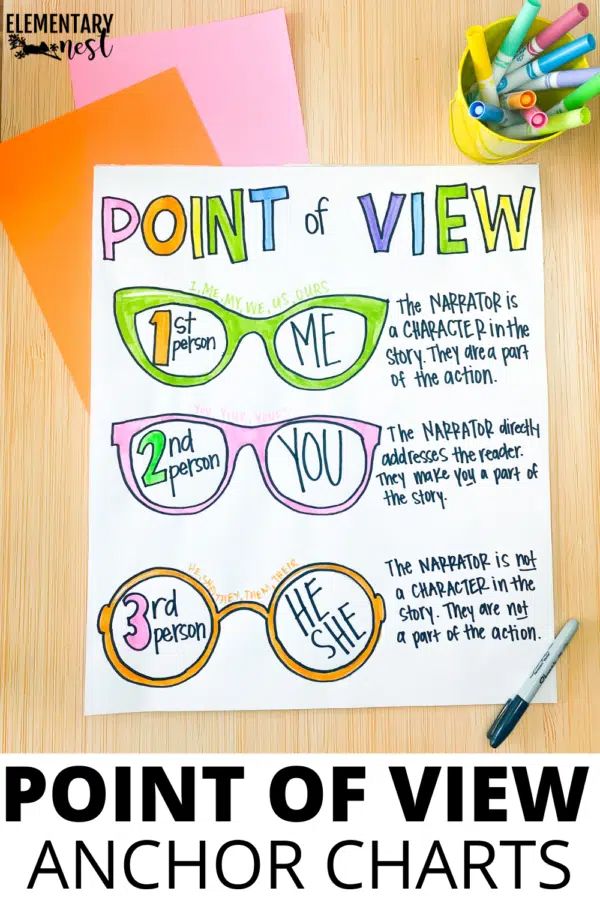 ELEMENTARY
nest
POINT of VIEW
I, ME, MY, WE, US, OURS
1st person
ME
The NARRATOR is
a CHARACTER in the
story. They are a part
of the action.
YOU, YOUR, YOURS
2nd person
YOU
The NARRATOR directly
addresses the reader.
They make you a part of
the story.
HE, SHE, THEY, THEM, THEIR
3rd person
HE
SHE
The NARRATOR is not
a CHARACTER in the
story. They are not
a part of the action.
POINT OF VIEW
ANCHOR CHARTS